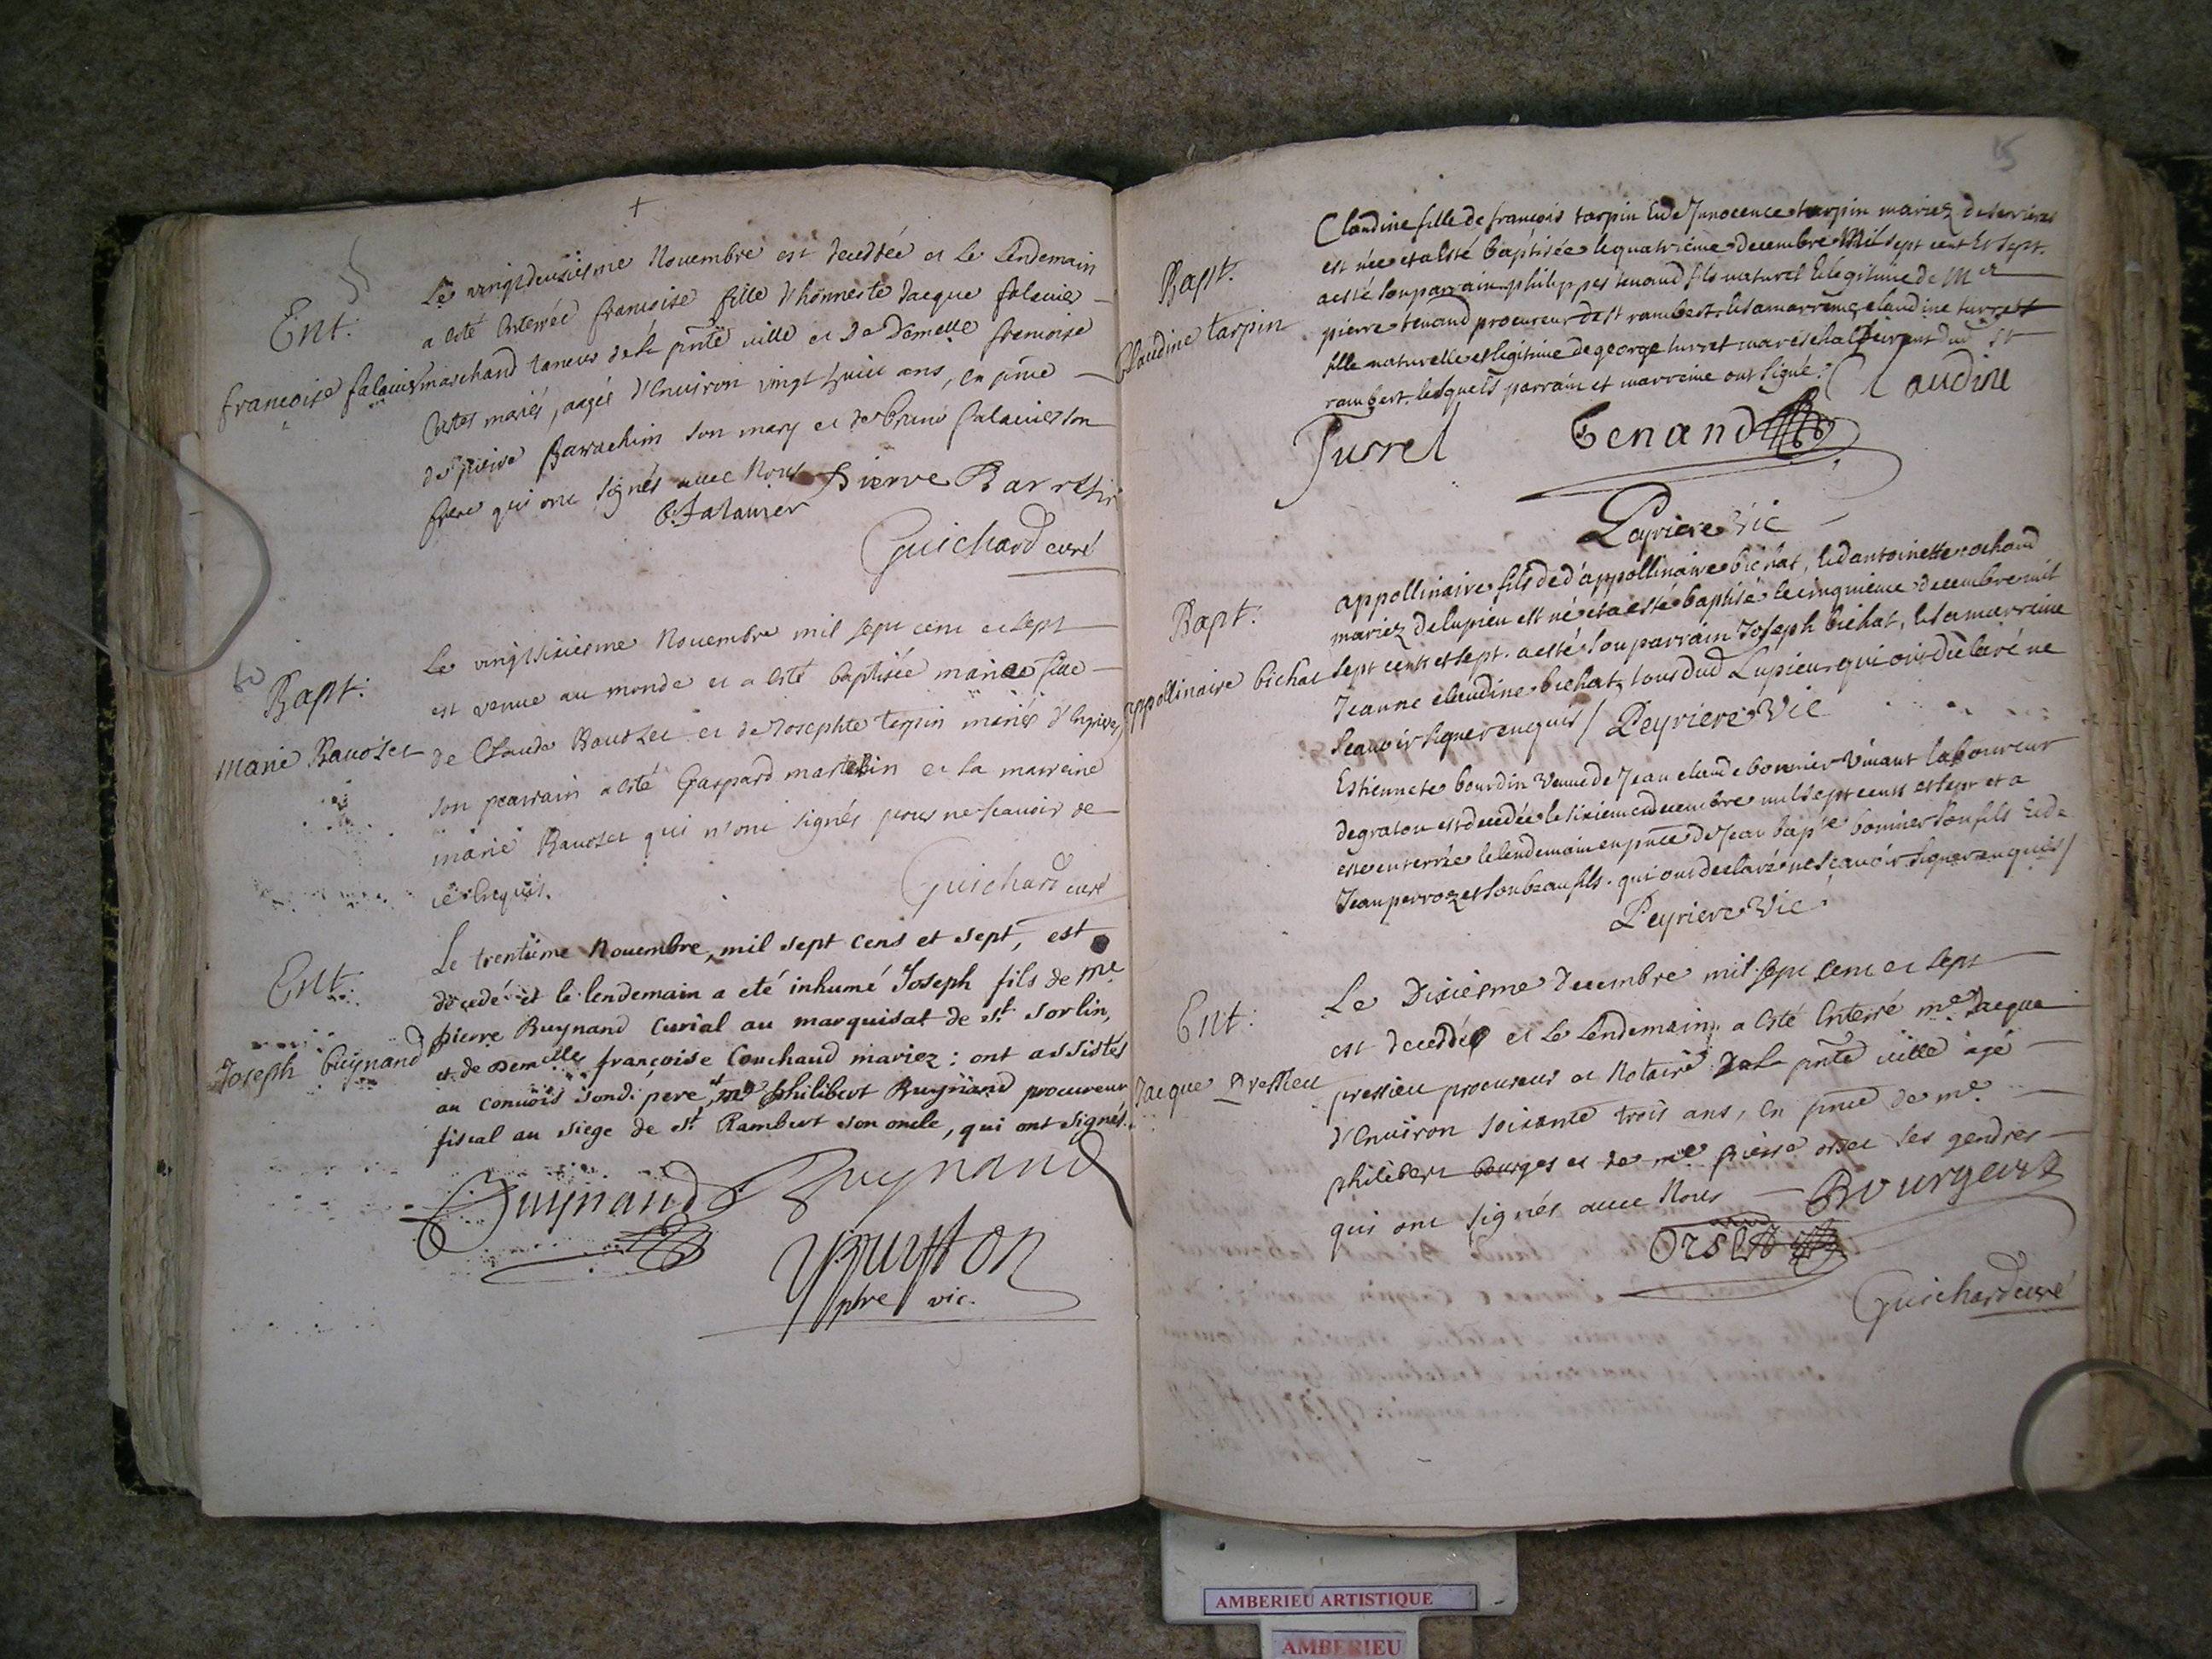 Ent.
françoise falavier
Le vingtdeuxiesme Novembre est decedée et Le Lendemain
a esté Enterrée francoise fille d'honneste Jacque falavier
marchand taneur de la pnte ville et de Demelle francoise
mariés, aagée d'Environ vingt huict ans, En pnce
de pierre Barrachin son mary et de falavier son
frere qui ont signés avec Nous Pierre
falavier
Guichard curé
Bapt:
marie Bauozet
Le vingtsixiesme Novembre mil sept cent et sept
est venue au monde et a esté baptisée marie fille
de Claude Bauozet et de Josephte terpin mariés
son parrain a esté Gaspard et la marreine
marie Bauozet qui n'ont signés pour ne scavoir de
ce Enquis.
Guichard curé
Ent.
Joseph Buynand
Le trentieme Novembre, mil sept cens et sept, est
decedé et le lendemain a eté inhumé Joseph fils de me
pierre Buynand Curial au marquisat de st sorlin,
et de Demelle françoise Couchaud mariez: ont assistés
au convois sondi: pere, et me philibert Buynand procureur
fiscal au siege de st Rambert son oncle, qui ont signés.
Buynand Buynand
ptre vic.
15
Bapt.
Claudine tarpin
Claudine fille de françois tarpin Et de Innocence tarpin mariez de serrieres
est née et a Esté baptisée le quatrieme decembre Mil sept cent Et sept.
a esté son parrain philippes tenand fils naturel Et legitime de Me
pierre tenand procureur de st rambert. et sa marreine claudine turret
fille naturelle et legitime de george turret mareschal dud st
rambert. lesquels parrain et marreine ont signé. Claudine
Turrel Tenand
Peyriere Vic
Bapt:
appollinaire bichat
appollinaire fils de d'appollinaire bichat, Et d'antoinette
mariez de lupieu est né et a esté baptisé le cinquieme decembre mil
sept cents et sept. a esté son parrain Joseph bichat, et sa marreine
Jeanne claudine bichat, tous dud Lupieu qui ont declaré ne
scavoir signer enquis / Peyriere Vic
Estiennete bourdin veuve de Jean claude bonnier vivant laboureur
de est decedée le sixieme decembre mil sept cents et sept et a
esté enterrée le lendemain en pnce de Jean bapte bonnier son fils Et de
Jean perrozet son beau fils. qui ont declaré ne scavoir signer enquis /
Peyriere Vic
Ent:
Jacque Pressieu
Le Dixiesme decembre mil sept cent et sept
est decedé et Le Lendemain a esté Enterré me Jacque
pressieu procureur et Notaire de la pnte ville agé
d'Environ soixante trois ans, En pnce de me.
philibert bourges et de me pierre orset ses gendres
qui ont signés avec Nous Bourgeoz
Orset
Guichard curé
AMBERIEU ARTISTIQUE
AMBERIEU